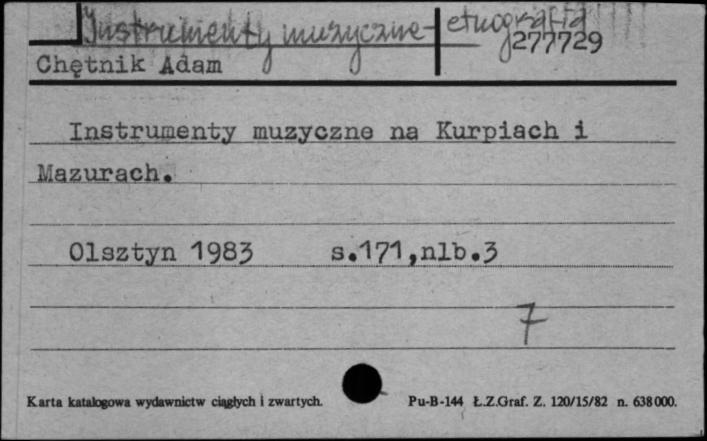 Instrumenty muzyczne - etnografia
277729
Chętnik Adam
Instrumenty muzyczne na Kurpiach i
Mazurach.
Olsztyn 1983 s.171,nlb.3
7
Karta katalogowa wydawnictw ciągłych i zwartych. Pu-B-144 Ł.Z.Graf. Z. 120/15/82 n. 638000.